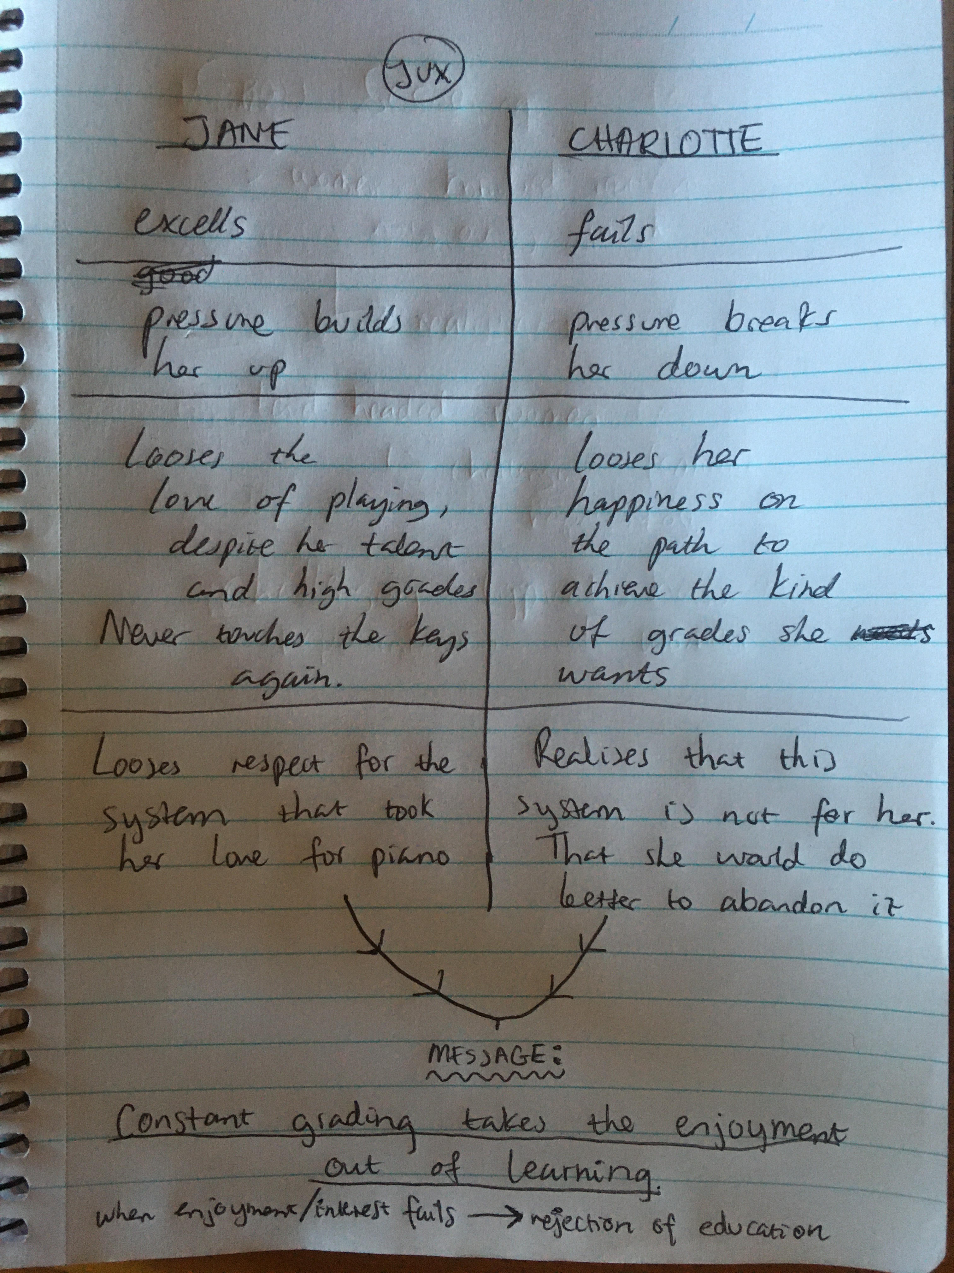 JUX
JANE
CHARLOTTE
excells
fails
good
pressure builds
her up
pressure breaks
her down
Looses the
love of playing,
despite her talent
and high grades
Never touches the keys
again.
looses her
happiness on
the path to
achieve the kind
of grades she needs
wants
Looses respect for the
system that took
her love for piano
Realises that this
system is not for her.
That she would do
better to abandon it
MESSAGE:
Constant grading takes the enjoyment
out of learning.
when enjoyment/interest fails → rejection of education